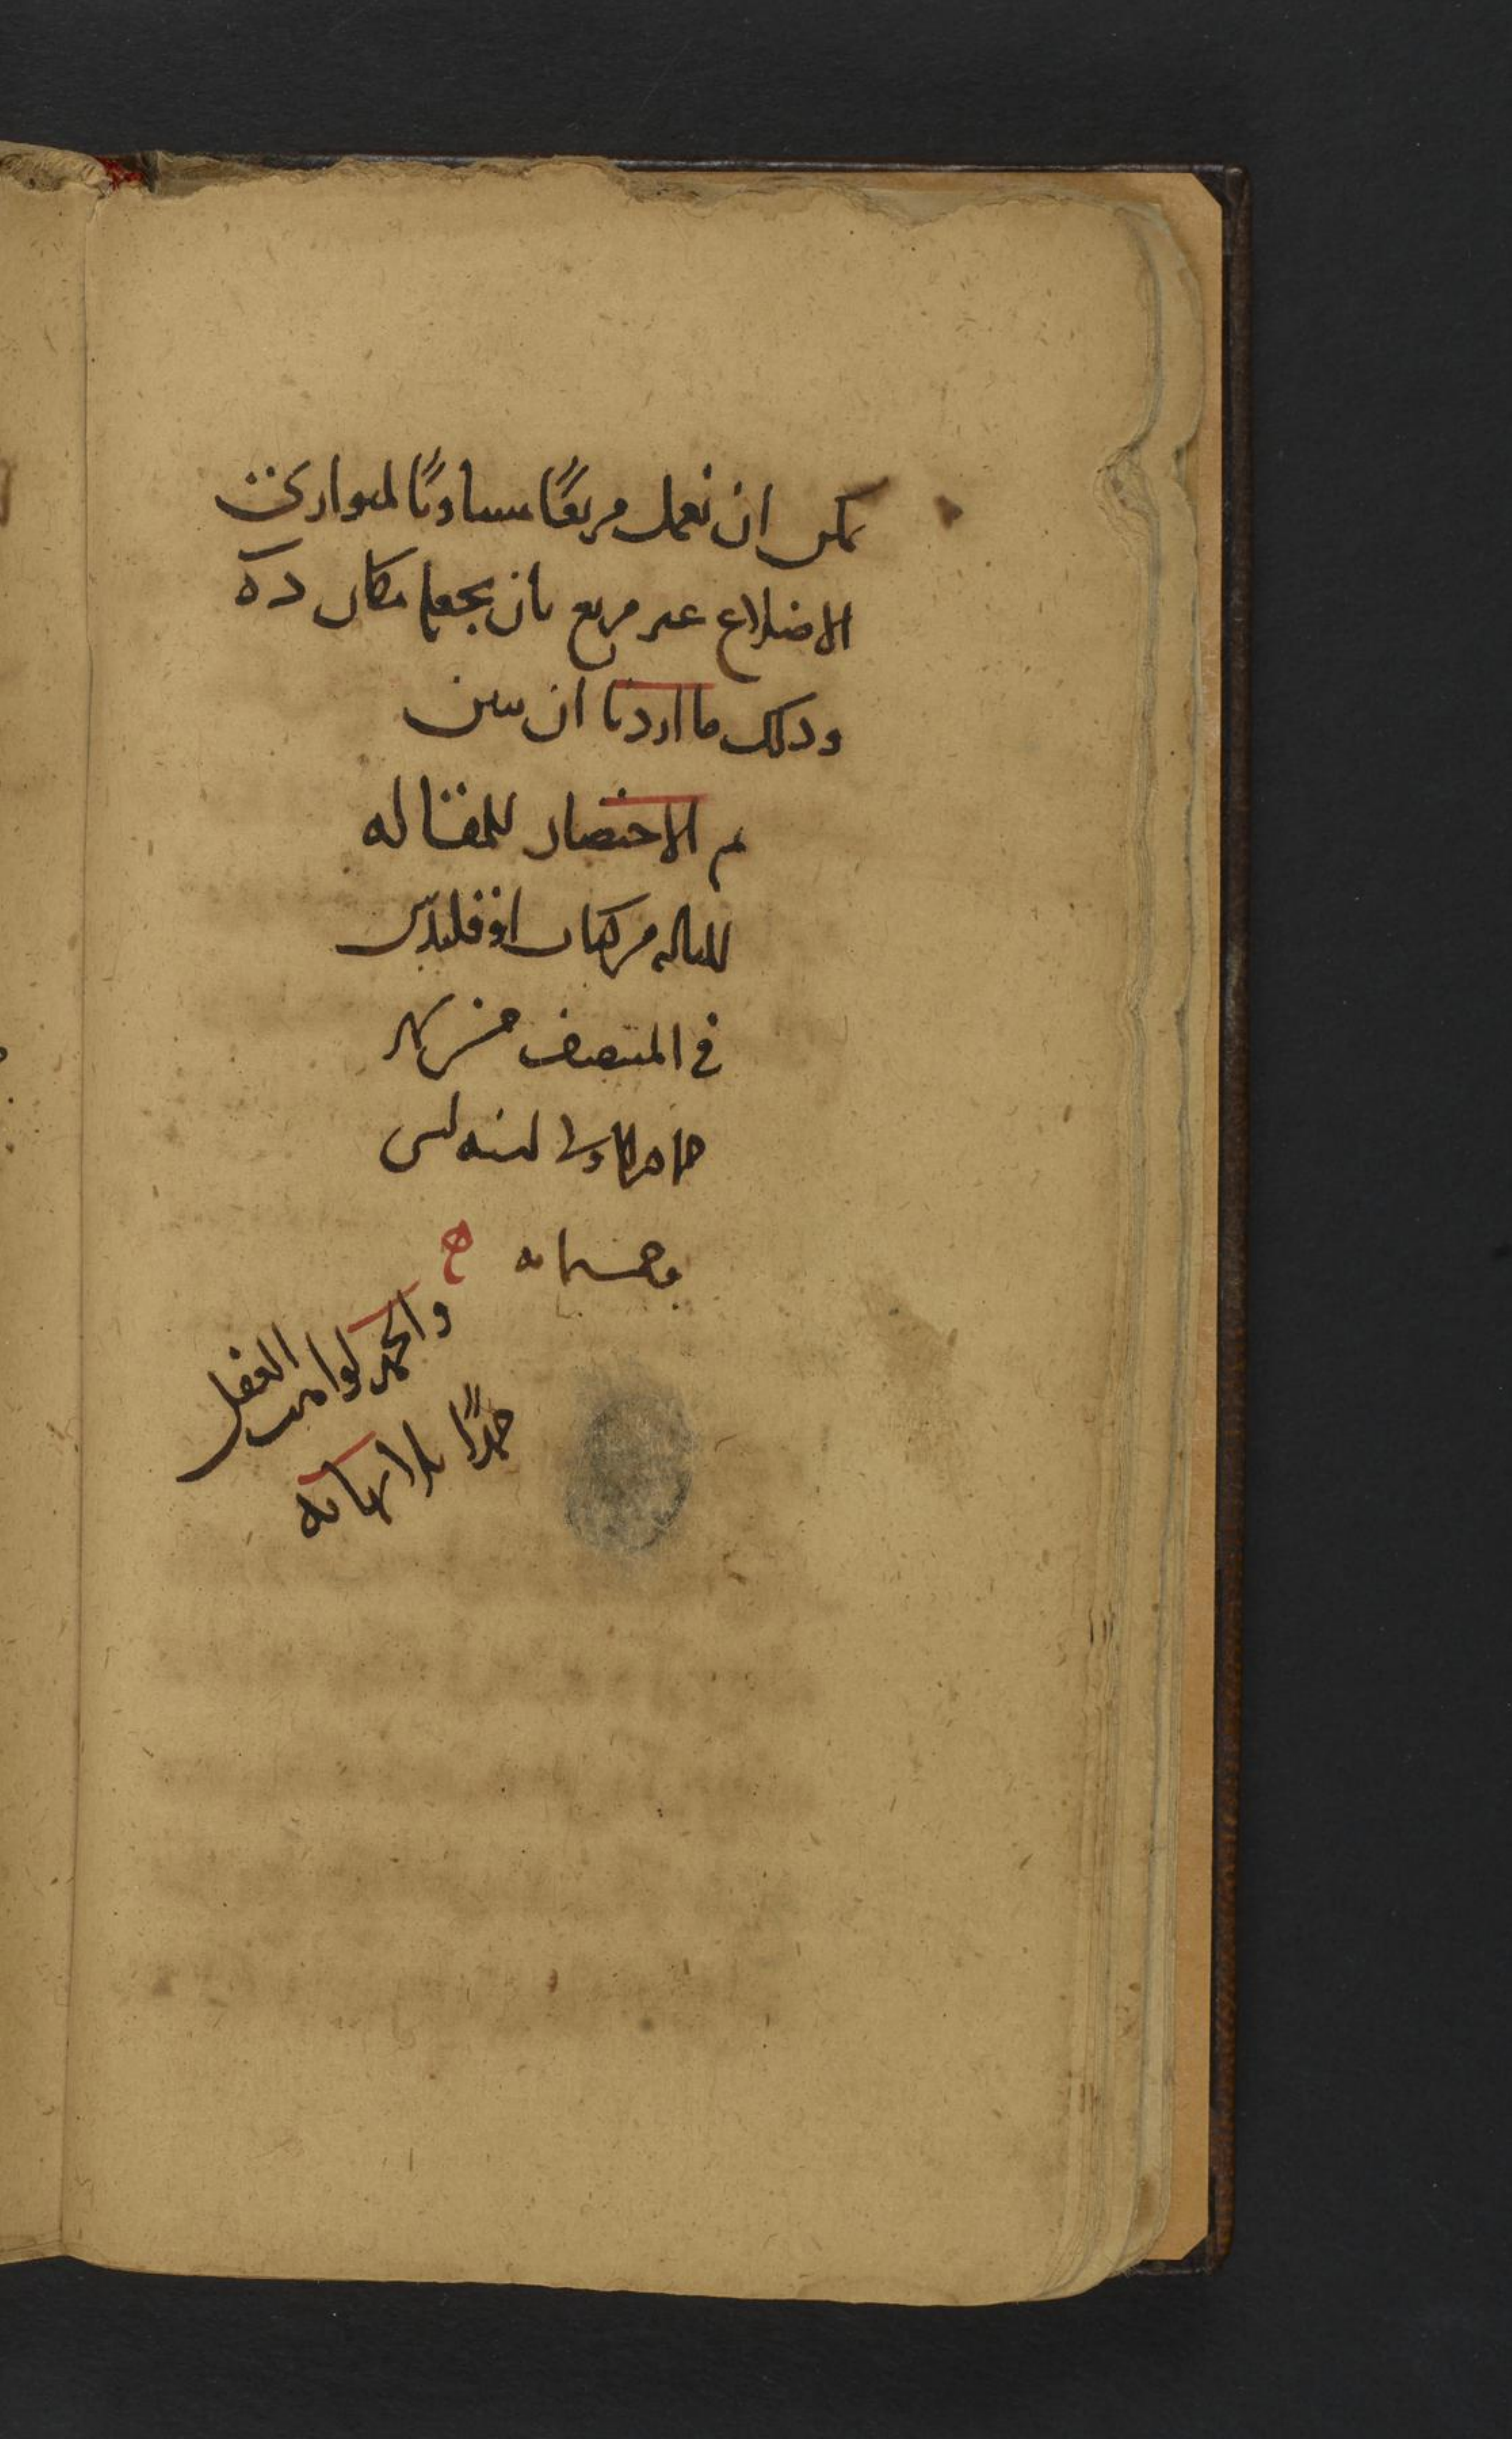 يمكن ان نعمل مربعًا مساويًا لمتوازى
الاضلاع غير مربع بان نجعلها مكان د ه
وذلك ما اردنا ان نبين
تم الاختصار للمقاله
الثانيه من كتاب اوقليدس
في المنتصف من شهر
جمادى الاولى لسنه
وخمسمايه
والحمد لواهب العقل
حمدًا بلا نهايه